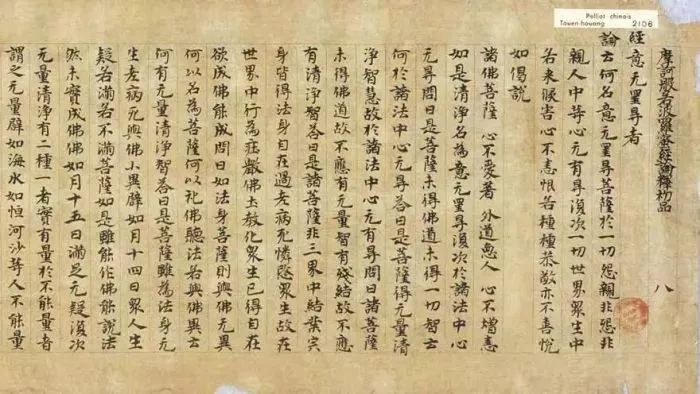 Pelliot chinois
Touen-houang 2106
摩訶般若波羅蜜經論釋初品 八
經 意无罣㝵者
論 云何名意无罣㝵菩薩於一切怨親非怨非
親人中等心无有㝵復次一切世界眾生中
若来侵害心不恚恨若種種恭敬亦不喜悅
如偈說
諸佛菩薩 心不愛著 外道惡人 心不憎恚
如是清淨名為意无罣㝵復次於諸法中心
无㝵問曰是菩薩未得佛道未得一切智云
何於諸法中心无㝵荅曰是菩薩得无量清
淨智慧故於諸法中心无有㝵問曰諸菩薩
未得佛道故不應有无量智有殘結故不應
有清淨智荅曰是諸菩薩非三界中結業宍
身皆得法身自在過老病死憐愍眾生故在
世界中行為莊嚴佛土教化眾生已得自在
欲成佛能成問曰如法身菩薩則與佛无異
何以名為菩薩何以礼佛聽法若與佛異云
何有无量清淨智荅曰是菩薩雖為法身无
生老病死與佛小異譬如月十四日眾人生
疑若滿若不滿菩薩如是雖能作佛能說法
然未實成佛佛如月十五日滿足无疑復次
无量清淨有二種一者實有量於不能量者
謂之无量譬如海水如恒河沙等人不能量